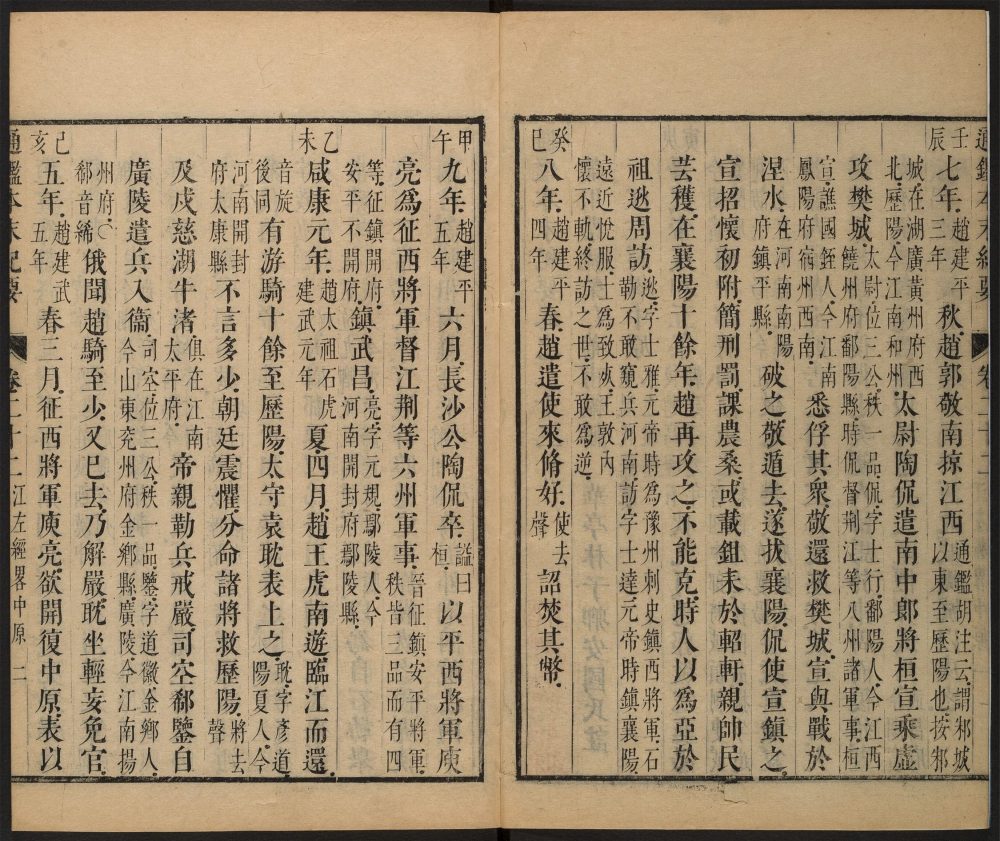 通鑑本末紀要 卷二十二
壬辰 七年趙建平三年秋趙郭敬南掠江西通鑑胡注云謂邾城以東至歷陽也按邾
城在湖廣黃州府西北歷陽今江南和州太尉陶侃遣南中郎將桓宣乘虛
攻樊城太尉位三公秩一品侃字士行鄱陽人今江西饒州府鄱陽縣時侃督荆江等八州諸軍事桓
宣譙國銍人今江南鳳陽府宿州西南悉俘其衆敬還救樊城宣與戰於
涅水在河南南陽府鎮平縣破之敬遁去遂拔襄陽侃使宣鎮之
宣招懷初附簡刑罰課農桑或載鉏耒於軺軒親帥民
芸穫在襄陽十餘年趙再攻之不能克時人以爲亞於
祖逖周訪逖字士雅元帝時爲豫州刺史鎮西將軍石勒不敢窺兵河南訪字士達元帝時鎮襄陽
遠近悅服士爲致死王敦內懷不軌終訪之世不敢爲逆
癸巳 八年趙建平四年春趙遣使來脩好使去聲詔焚其幣
甲午 九年趙建平五年六月長沙公陶侃卒謚曰桓以平西將軍庾
亮爲征西將軍督江荆等六州軍事晉征鎮安平將軍秩皆三品而有四
等征鎮開府安平不開府鎮武昌亮字元規鄢陵人今河南開封府鄢陵縣
乙未 咸康元年趙太祖石虎建武元年夏四月趙王虎南遊臨江而還
音旋後同有游騎十餘至歷陽太守袁耽表上之耽字彥道陽夏人今
河南開封府太康縣不言多少朝廷震懼分命諸將救歷陽將去聲
及戍慈湖牛渚俱在江南太平府帝親勒兵戒嚴司空郗鑒自
廣陵遣兵入衞司空位三公秩一品鑒字道徽金鄉人今山東兖州府金鄉縣廣陵今江南揚
州府○郗音絺俄聞趙騎至少又已去乃解嚴耽坐輕妄免官
己亥 五年趙建武五年春三月征西將軍庾亮欲開復中原表以
通鑑本末紀要 卷二十二 江左經畧中原 二